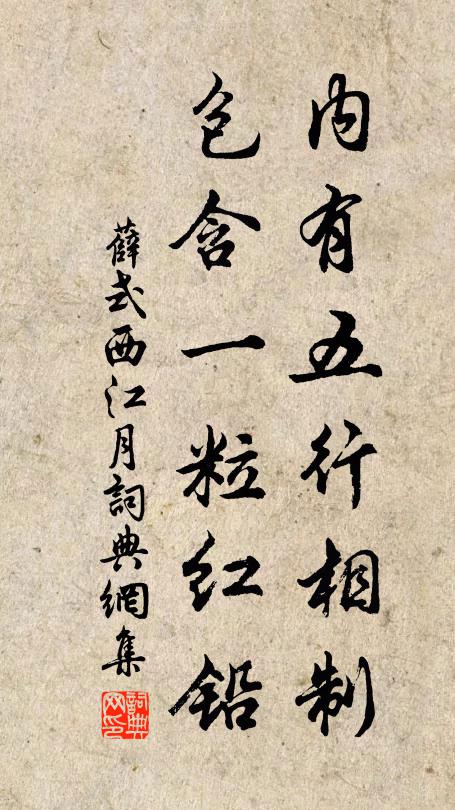 内有五行相制
包含一粒红铅
薛式西江月詞典網集
詞典网印